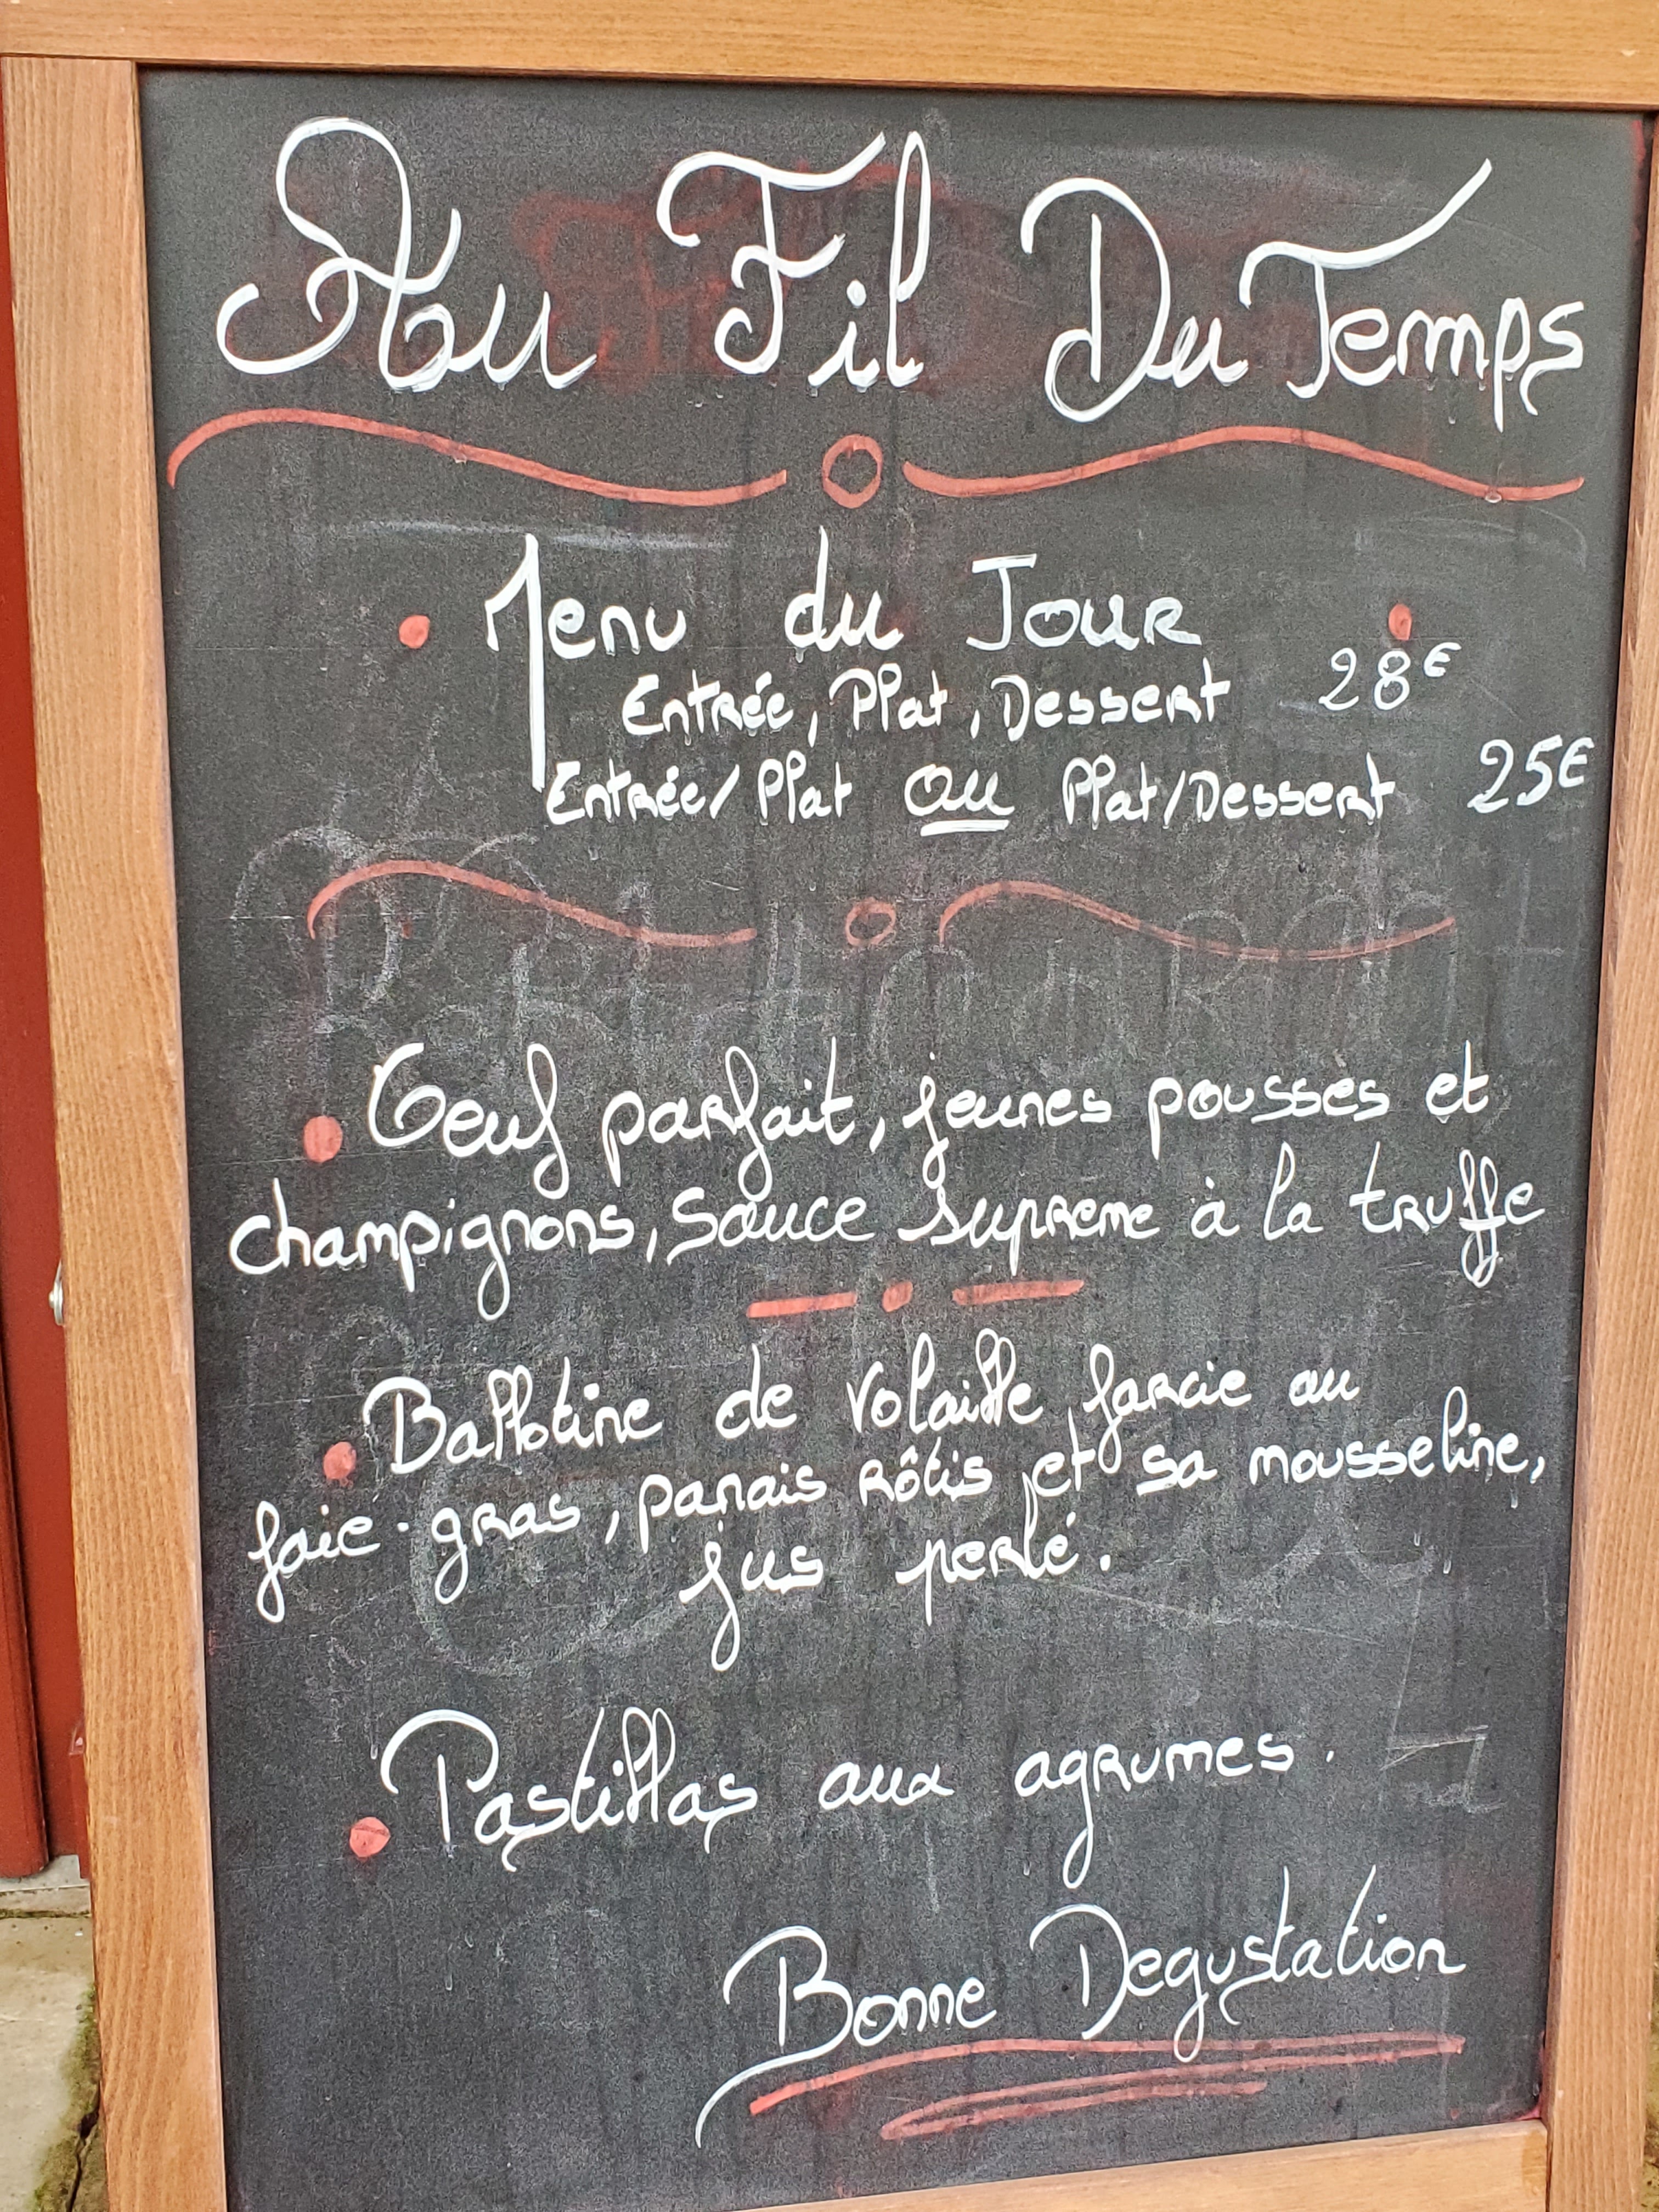 Au Fil Du Temps
Menu du Jour
Entrée, Plat, Dessert 28€
Entrée/Plat ou Plat/Dessert 25€
Oeuf parfait, jeunes pousses et
champignons, sauce supreme à la truffe
Ballotine de volaille farcie au
foie-gras, panais rôtis et sa mousseline,
jus perlé.
Pastillas aux agrumes.
Bonne Degustation